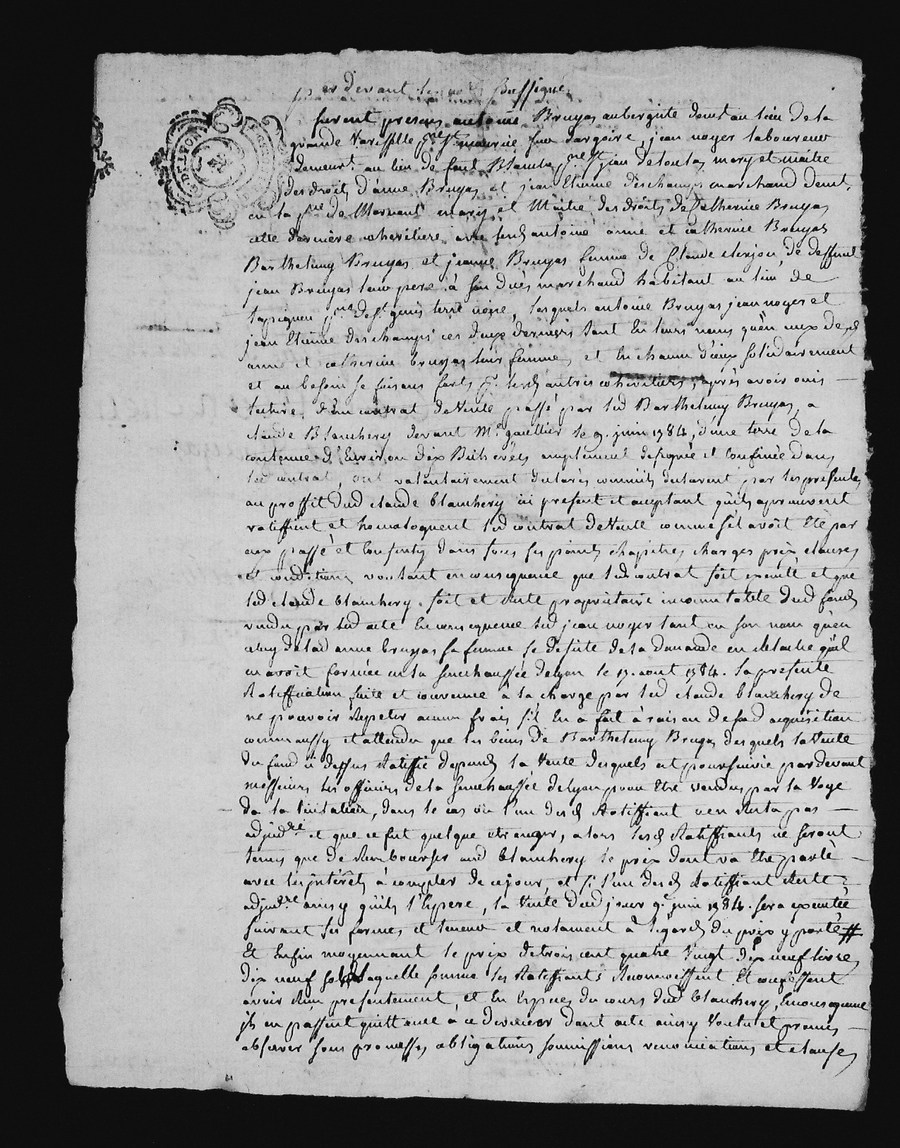 par devant les no.res soussignés
furent presens antoine Bruyas aubergiste demt au lieu de la
grande Varisselle psse st maurice sur dargoire, jean noyer laboureur
demeurt au lieu de font psse jean de toulas mary et maitre
des droits d'anne Bruyas et jean Etienne deschamps marchand demt
en la psse de Mornant mary et Maitre des droits de Catherine Bruyas
cette derniere coheritiere avec lesd antoine anne et catherine Bruyas
Barthelemy Bruyas et jeanne Bruyas femme de Claude de deffunt
jean Bruyas leur pere à son décès marchand habitant au lieu de
psse de st genis terre noire, lesquels antoine Bruyas jean noyer et
jean Etienne deschamps ces deux derniers tant en leurs noms qu'en ceux de d
anne et catherine bruyas leur femmes et un chacun d'eux solidairement
et au besoin se faisans forts pr lesd autres coheritiers, après avoir ouis
lecture d'un contrat de Vente passé par led Barthelemy Bruyas, a
claude Blanchery devant Me gaultier le 9. juin 1784, d'une terre de la
contenue d'Environ dix Bicherées amplement designée et confinée dans
led contrat, ont volontairement declarés comme ils declarent par les presentes
au proffit dud claude blanchery ici present et acceptant qu'ils aprouvent
ratiffient et homologuent led contrat de Vente comme s'il avoit Eté par
eux passé et Consenty dans tous ses points chapitres charges prix, clauses
et conditions voulant en consequence que led contrat soit executé et que
led claude blanchery soit et reste proprietaire incommutable dud fonds
vendu par led acte En consequence led jean noyer tant en son nom qu'en
celuy de lad anne bruyas sa femme se desiste de la demande en relache qu'il
en avoit formée en la senechaussée de lyon le 17. aout 1784. la presente
Ratiffication faite et convenue à la charge par led claude blanchery de
ne pouvoir Repeter aucun frais s'il En a fait à raison de lad acquisition
comm aussy et attendu que les biens de Barthelemy Bruyas desquels la Vente
du fond ci dessus Ratiffié dependt la Vente desquels est poursuivie par devant
messieurs les officiers de la senechaussée de lyon pour etre Vendus par la Voye
de la licitation, dans le cas ou l'un desd Ratiffiant n'en Resta pas
adjudre et que ce fut quelque etranger, alors lesd Ratiffiants ne seront
tenus que de Rembourser aud blanchery le prix dont va etre parlé
avec les interêts à compter de ce jour, et si l'un desd Ratiffiant Reste
adjudre ainsy qu'ils l'Espere, la Vente dud jour 9. juin 1784. sera executée
suivant ses formes et teneur et notament à l'egard du prix y porté #
Et Enfin moyennant le prix de trois cent quatre Vingt dix neuf livres
dix neuf sols laquelle somme les Ratiffiants Reconnoissent Et confessent
avoir Reçu presentement, et En Especes du cours dud blanchery, En consequence
ils en passent quittance à ce dernier dont acte ainsy Voulu et promis
observer sous promesses obligations soumissions renonciations et clauses